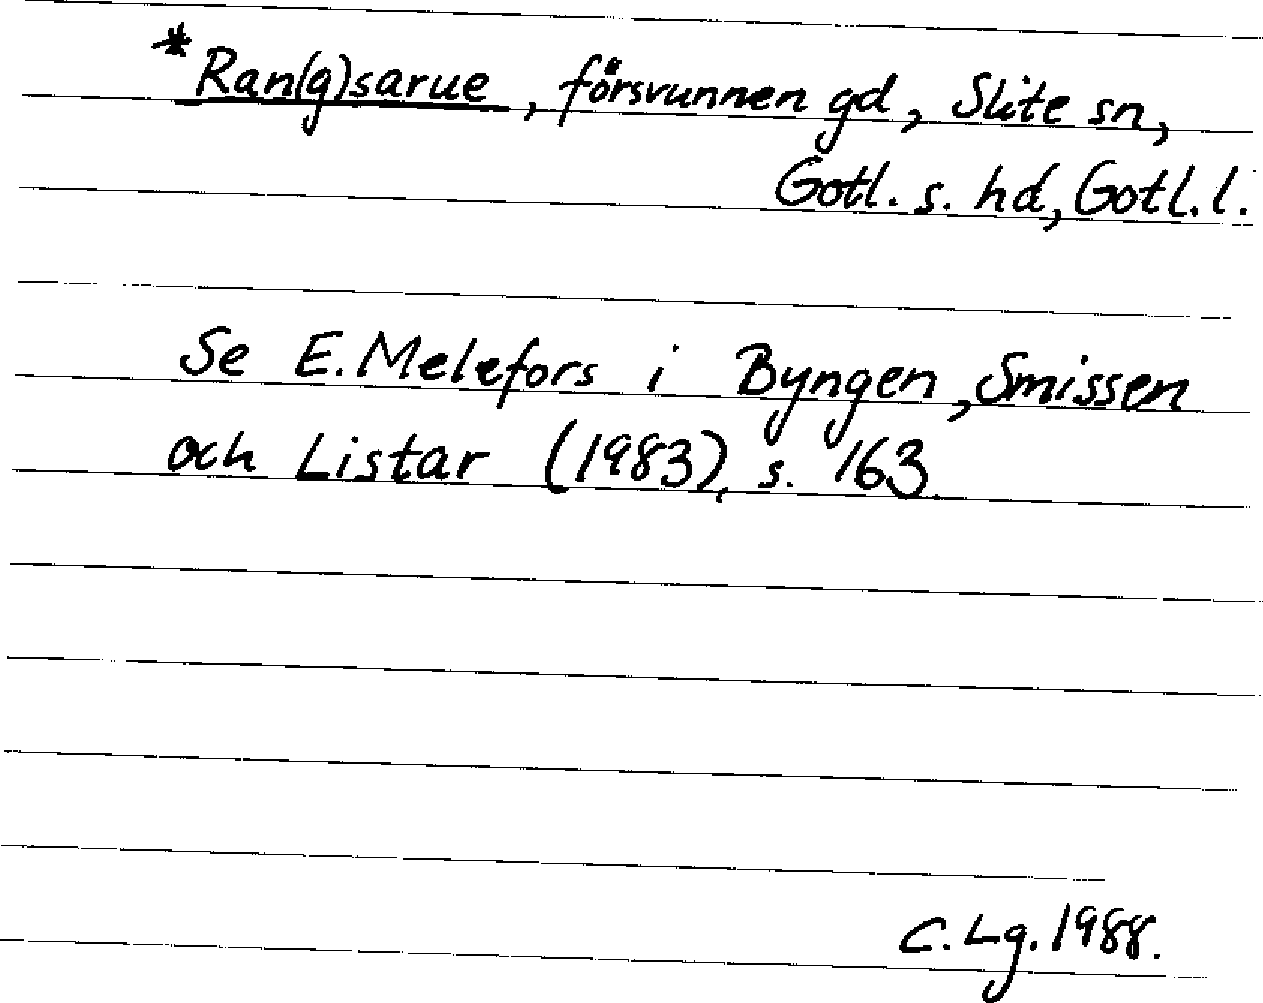 *Ran(g)sarue, försvunnen gd, Slite sn,
Gotl. s. hd, Gotl. l.
Se E. Melefors i Byngen, Smissen
och Listar (1983), s. 163.
C. Lg. 1988.